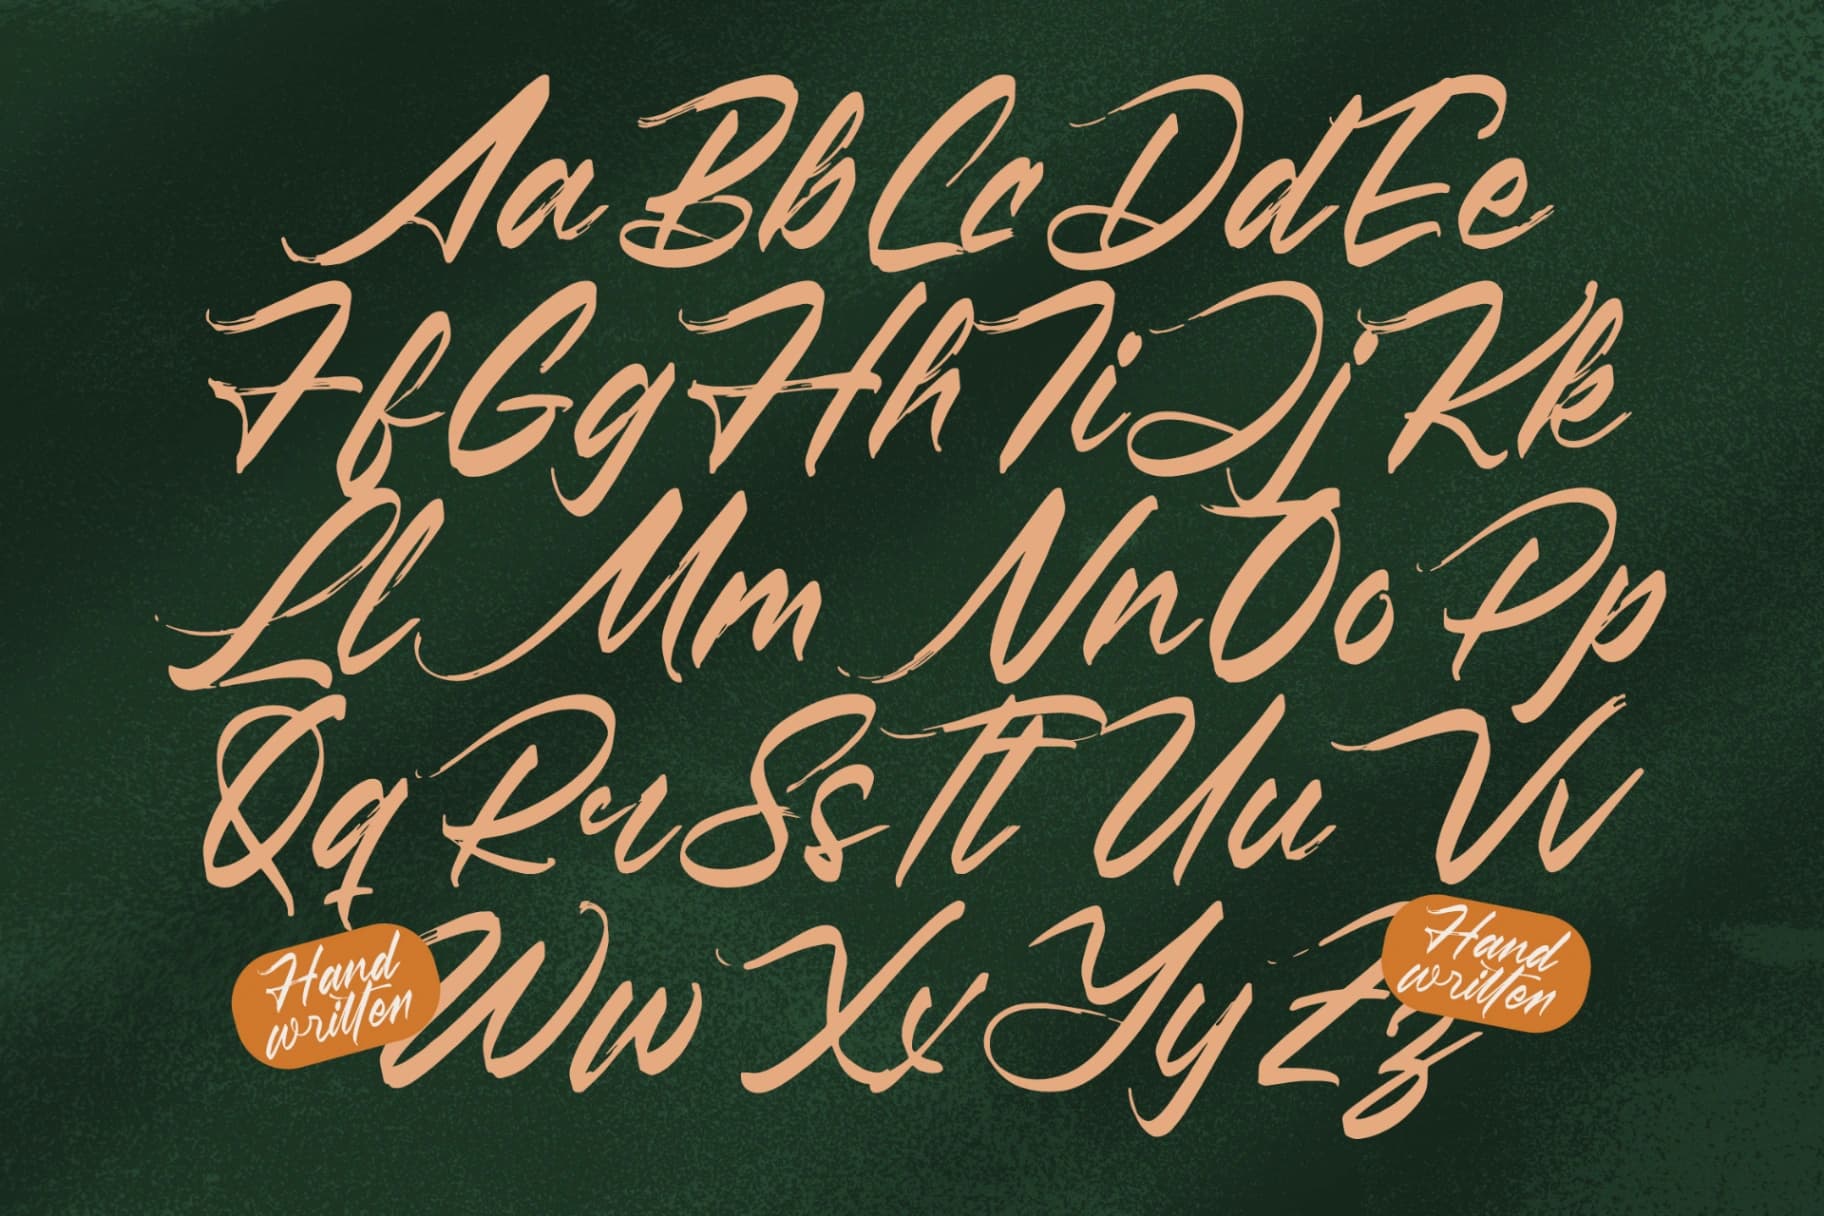 Aa Bb Cc Dd Ee
Ff Gg Hh Ii Jj Kk
Ll Mm Nn Oo Pp
Qq Rr Ss Tt Uu Vv
Ww Xx Yy Zz
Hand
written
Hand
written